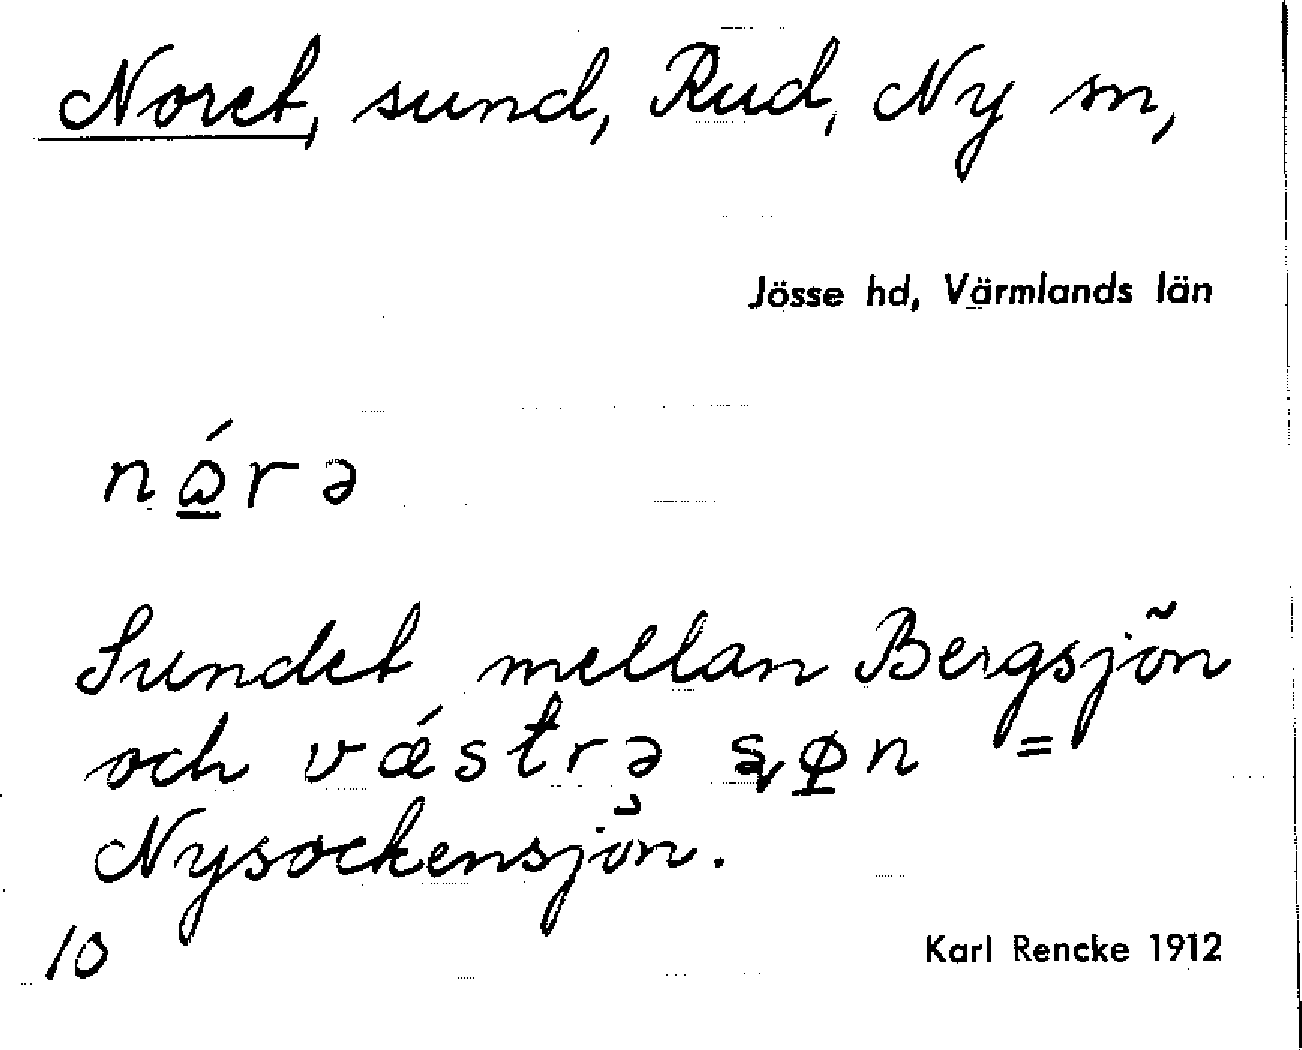 Noret, sund, Rud, Ny sn,
Jösse hd, Värmlands län
nǻ̲rə
Sundet mellan Bergsjön
och vǽstrə ʂø̲n =
Nysockensjön.
10
Karl Rencke 1912